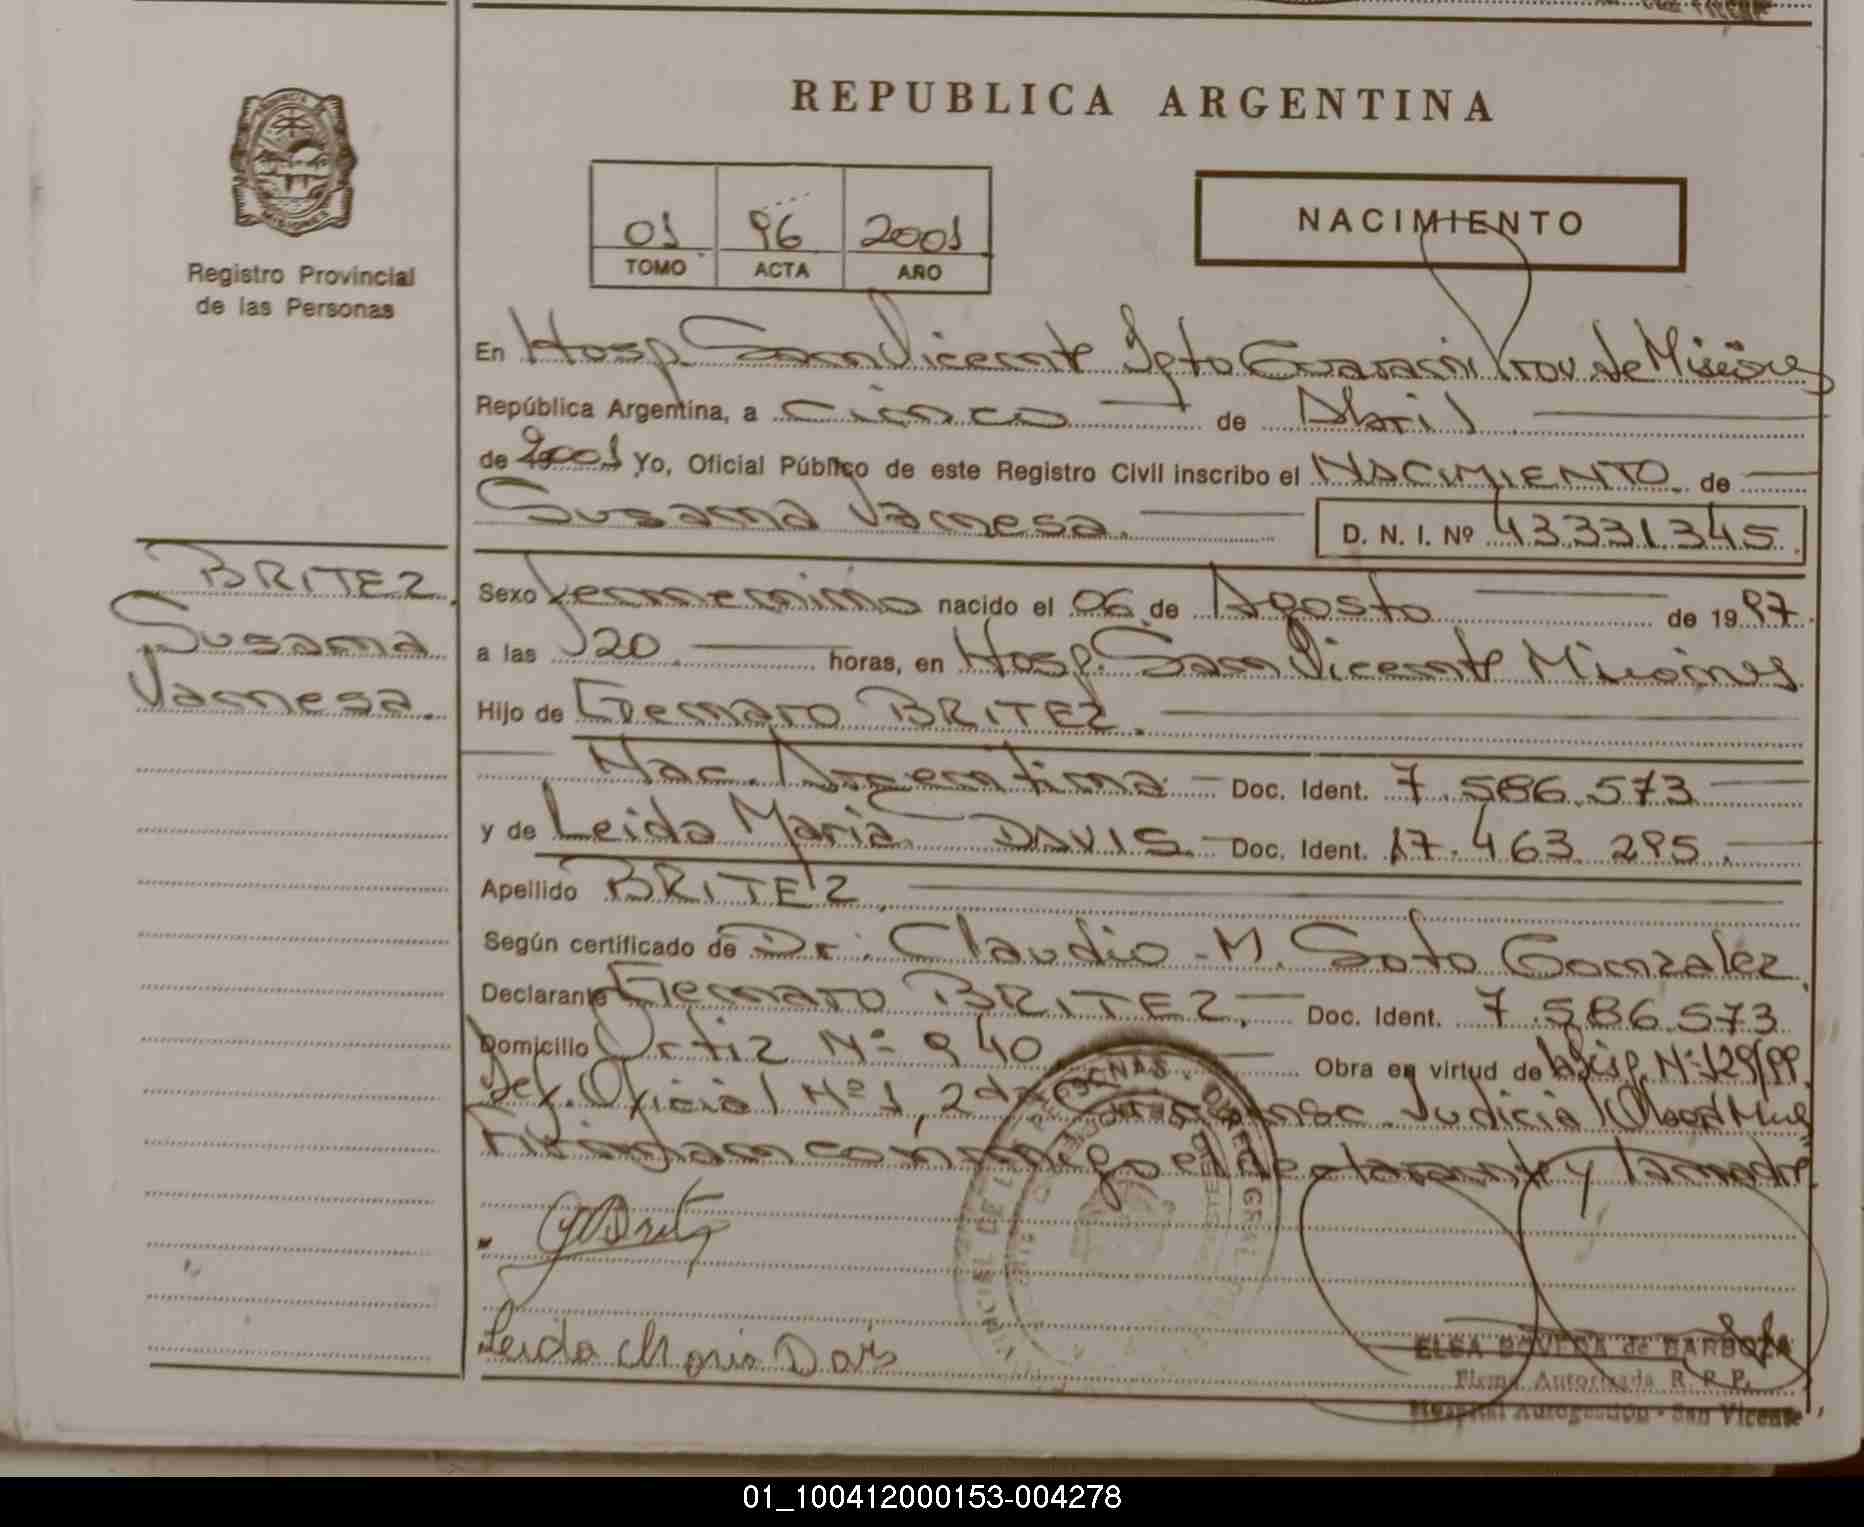 REPUBLICA ARGENTINA
Registro Provincial
de las Personas
01 96 2001
TOMO ACTA AÑO
NACIMIENTO
En Hosp. San Vicente Dpto Guarani Prov. de Misiones
República Argentina, a cinco de Abril
de 2001 Yo, Oficial Público de este Registro Civil inscribo el NACIMIENTO de
Susana Vanesa. D. N. I. Nº 43331345.
BRITEZ.
Susana
Vanesa.
Sexo femenino nacido el 06 de Agosto de 1997.
a las 20 horas, en Hosp. San Vicente Misiones
Hijo de Genaro BRITEZ.
Nac. Argentina Doc. Ident. 7.586.573
y de Leida Maria DAVIS. Doc. Ident. 17.463.295.
Apellido BRITEZ.
Según certificado de Dr. Claudio M. Soto Gonzalez.
Declarante Genaro BRITEZ. Doc. Ident. 7.586.573
Domicilio Ortiz Nº 940 Obra en virtud de Nº 129/99.
Def. Oficial Nº 1, 2da Judicial Oberá Mnes
Firman conmigo el declarante y la madre.
Leida Maria Davis
ELSA de BARBOZA
Firma Autorizada R. P. P.
Hospital Autogestión - San Vicente
01_100412000153-004278